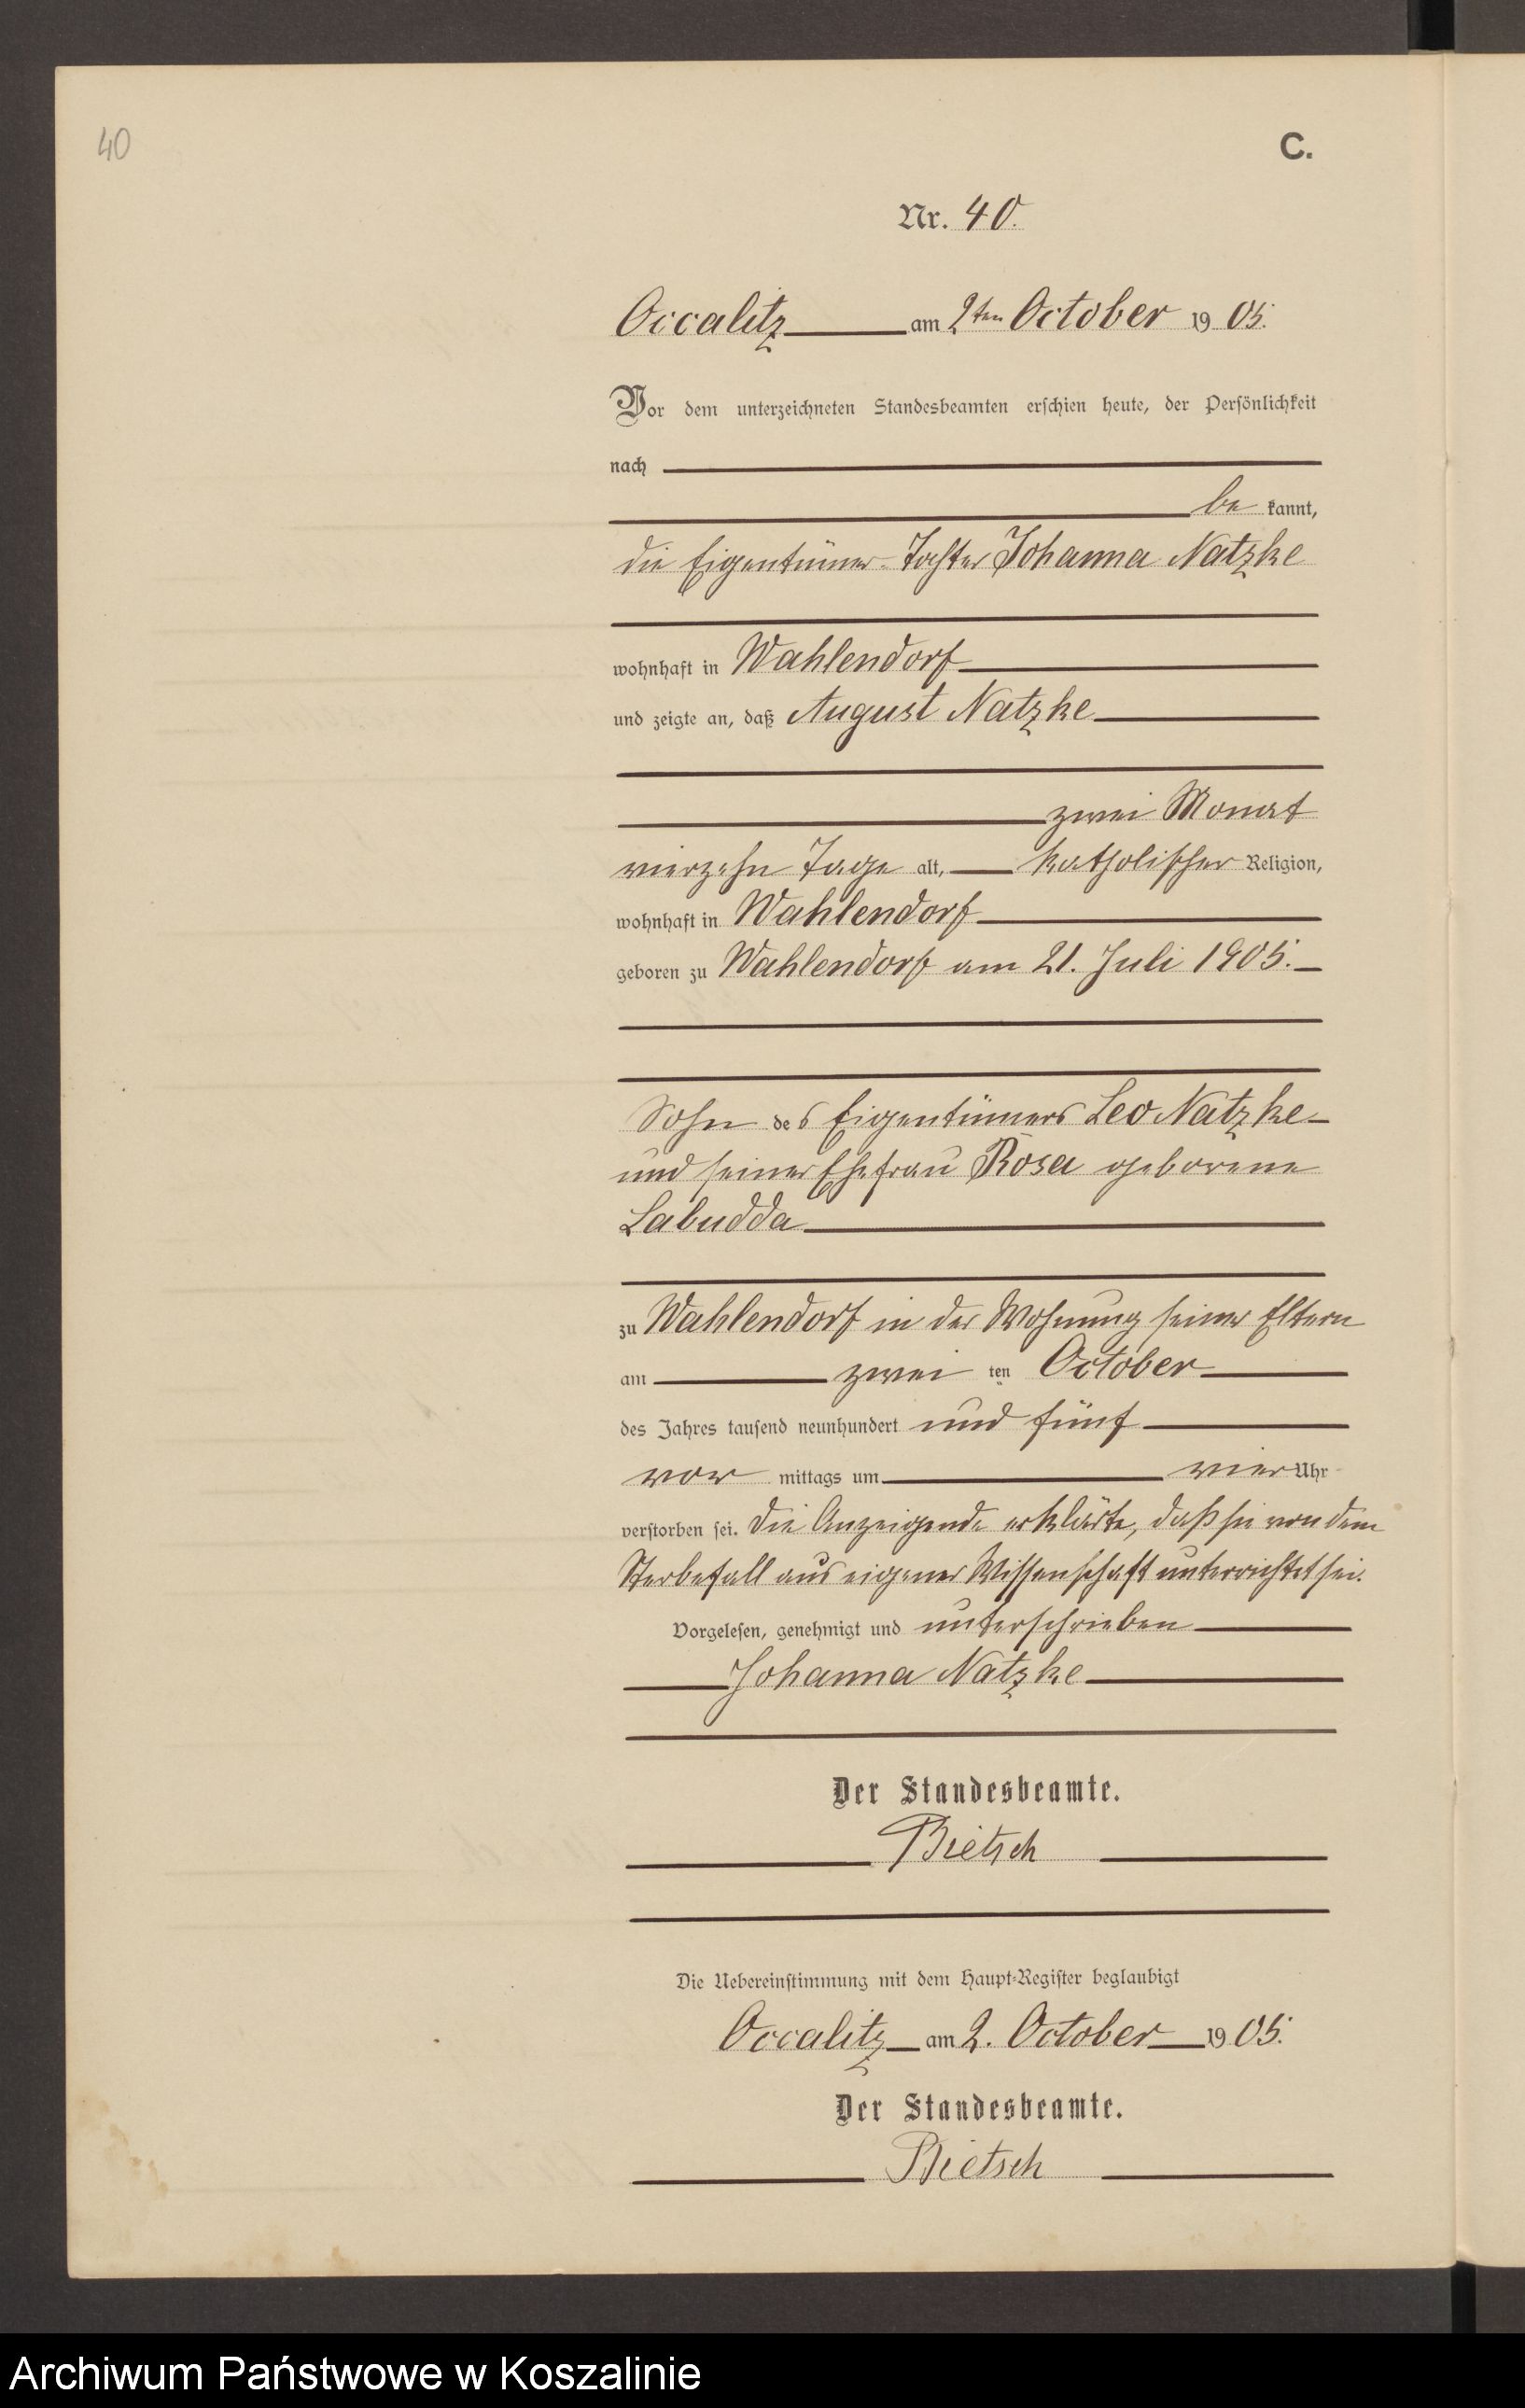 40
C.
Nr. 40.
Occalitz am 2ten October 1905.
Vor dem unterzeichneten Standesbeamten erschien heute, der Persönlichkeit
nach
be kannt,
die Eigentümer-Tochter Johanna Natzke
wohnhaft in Wahlendorf
und zeigte an, daß August Natzke
zwei Monat
vierzehn Tage alt, katholischer Religion,
wohnhaft in Wahlendorf
geboren zu Wahlendorf am 21. Juli 1905.
Sohn des Eigentümers Leo Natzke
und seiner Ehefrau Rosa geborene
Labudda
zu Wahlendorf in der Wohnung seiner Eltern
am zwei ten October
des Jahres tausend neunhundert und fünf
vor mittags um vier Uhr
verstorben sei. Die Anzeigende erklärte, daß sie von dem
Sterbefall aus eigener Wissenschaft unterrichtet sei.
Vorgelesen, genehmigt und unterschrieben
Johanna Natzke
Der Standesbeamte.
Bietsch
Die Uebereinstimmung mit dem Haupt-Register beglaubigt
Occalitz am 2. October 1905.
Der Standesbeamte.
Bietsch
Archiwum Państwowe w Koszalinie